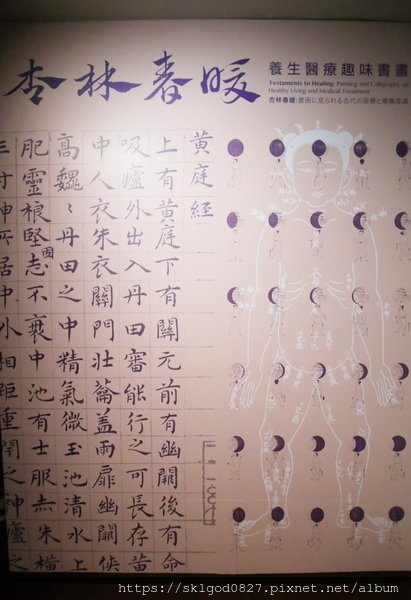 杏林春暖
養生醫療趣味書畫
Testaments to Healing: Painting and Calligraphy on
Healthy Living and Medical Treatment
杏林春暖:書画に見られる古代の医療と健康意識
黃庭經
上有黃庭下有關元前有幽闕後有命
吸廬外出入丹田審能行之可長存黃
中人衣朱衣關門壯蘥蓋兩扉幽闕俠
高魏〻丹田之中精氣微玉池清水上
肥靈根堅志不衰中池有士服赤朱橫
三寸神所居中外相距重閇之神廬之
https://sklgod0827.pixnet.net/album